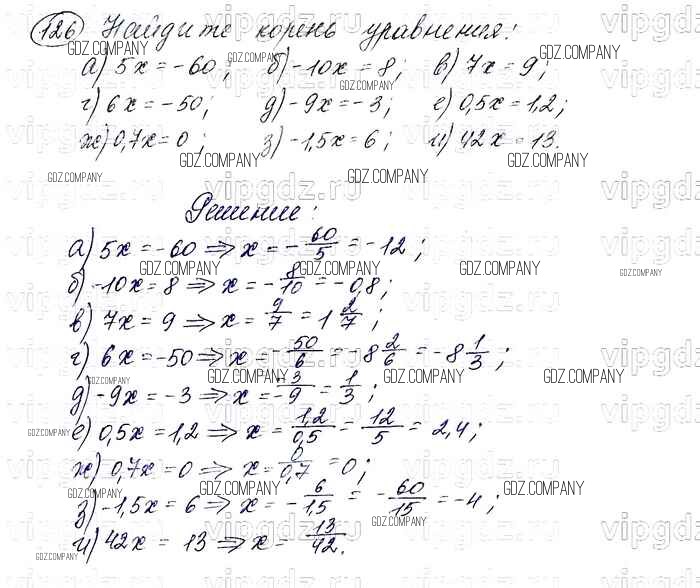 126 Найдите корень уравнения:
а) 5x = -60; б) -10x = 8; в) 7x = 9;
г) 6x = -50; д) -9x = -3; е) 0,5x = 1,2;
ж) 0,7x = 0; з) -1,5x = 6; и) 42x = 13.
Решение:
а) 5x = -60 ⇒ x = -60/5 = -12;
б) -10x = 8 ⇒ x = -8/10 = -0,8;
в) 7x = 9 ⇒ x = 9/7 = 1 2/7;
г) 6x = -50 ⇒ x = -50/6 = -8 2/6 = -8 1/3;
д) -9x = -3 ⇒ x = -3/-9 = 1/3;
е) 0,5x = 1,2 ⇒ x = 1,2/0,5 = 12/5 = 2,4;
ж) 0,7x = 0 ⇒ x = 0/0,7 = 0;
з) -1,5x = 6 ⇒ x = -6/1,5 = -60/15 = -4;
и) 42x = 13 ⇒ x = 13/42.
GDZ.COMPANY
vipgdz.ru